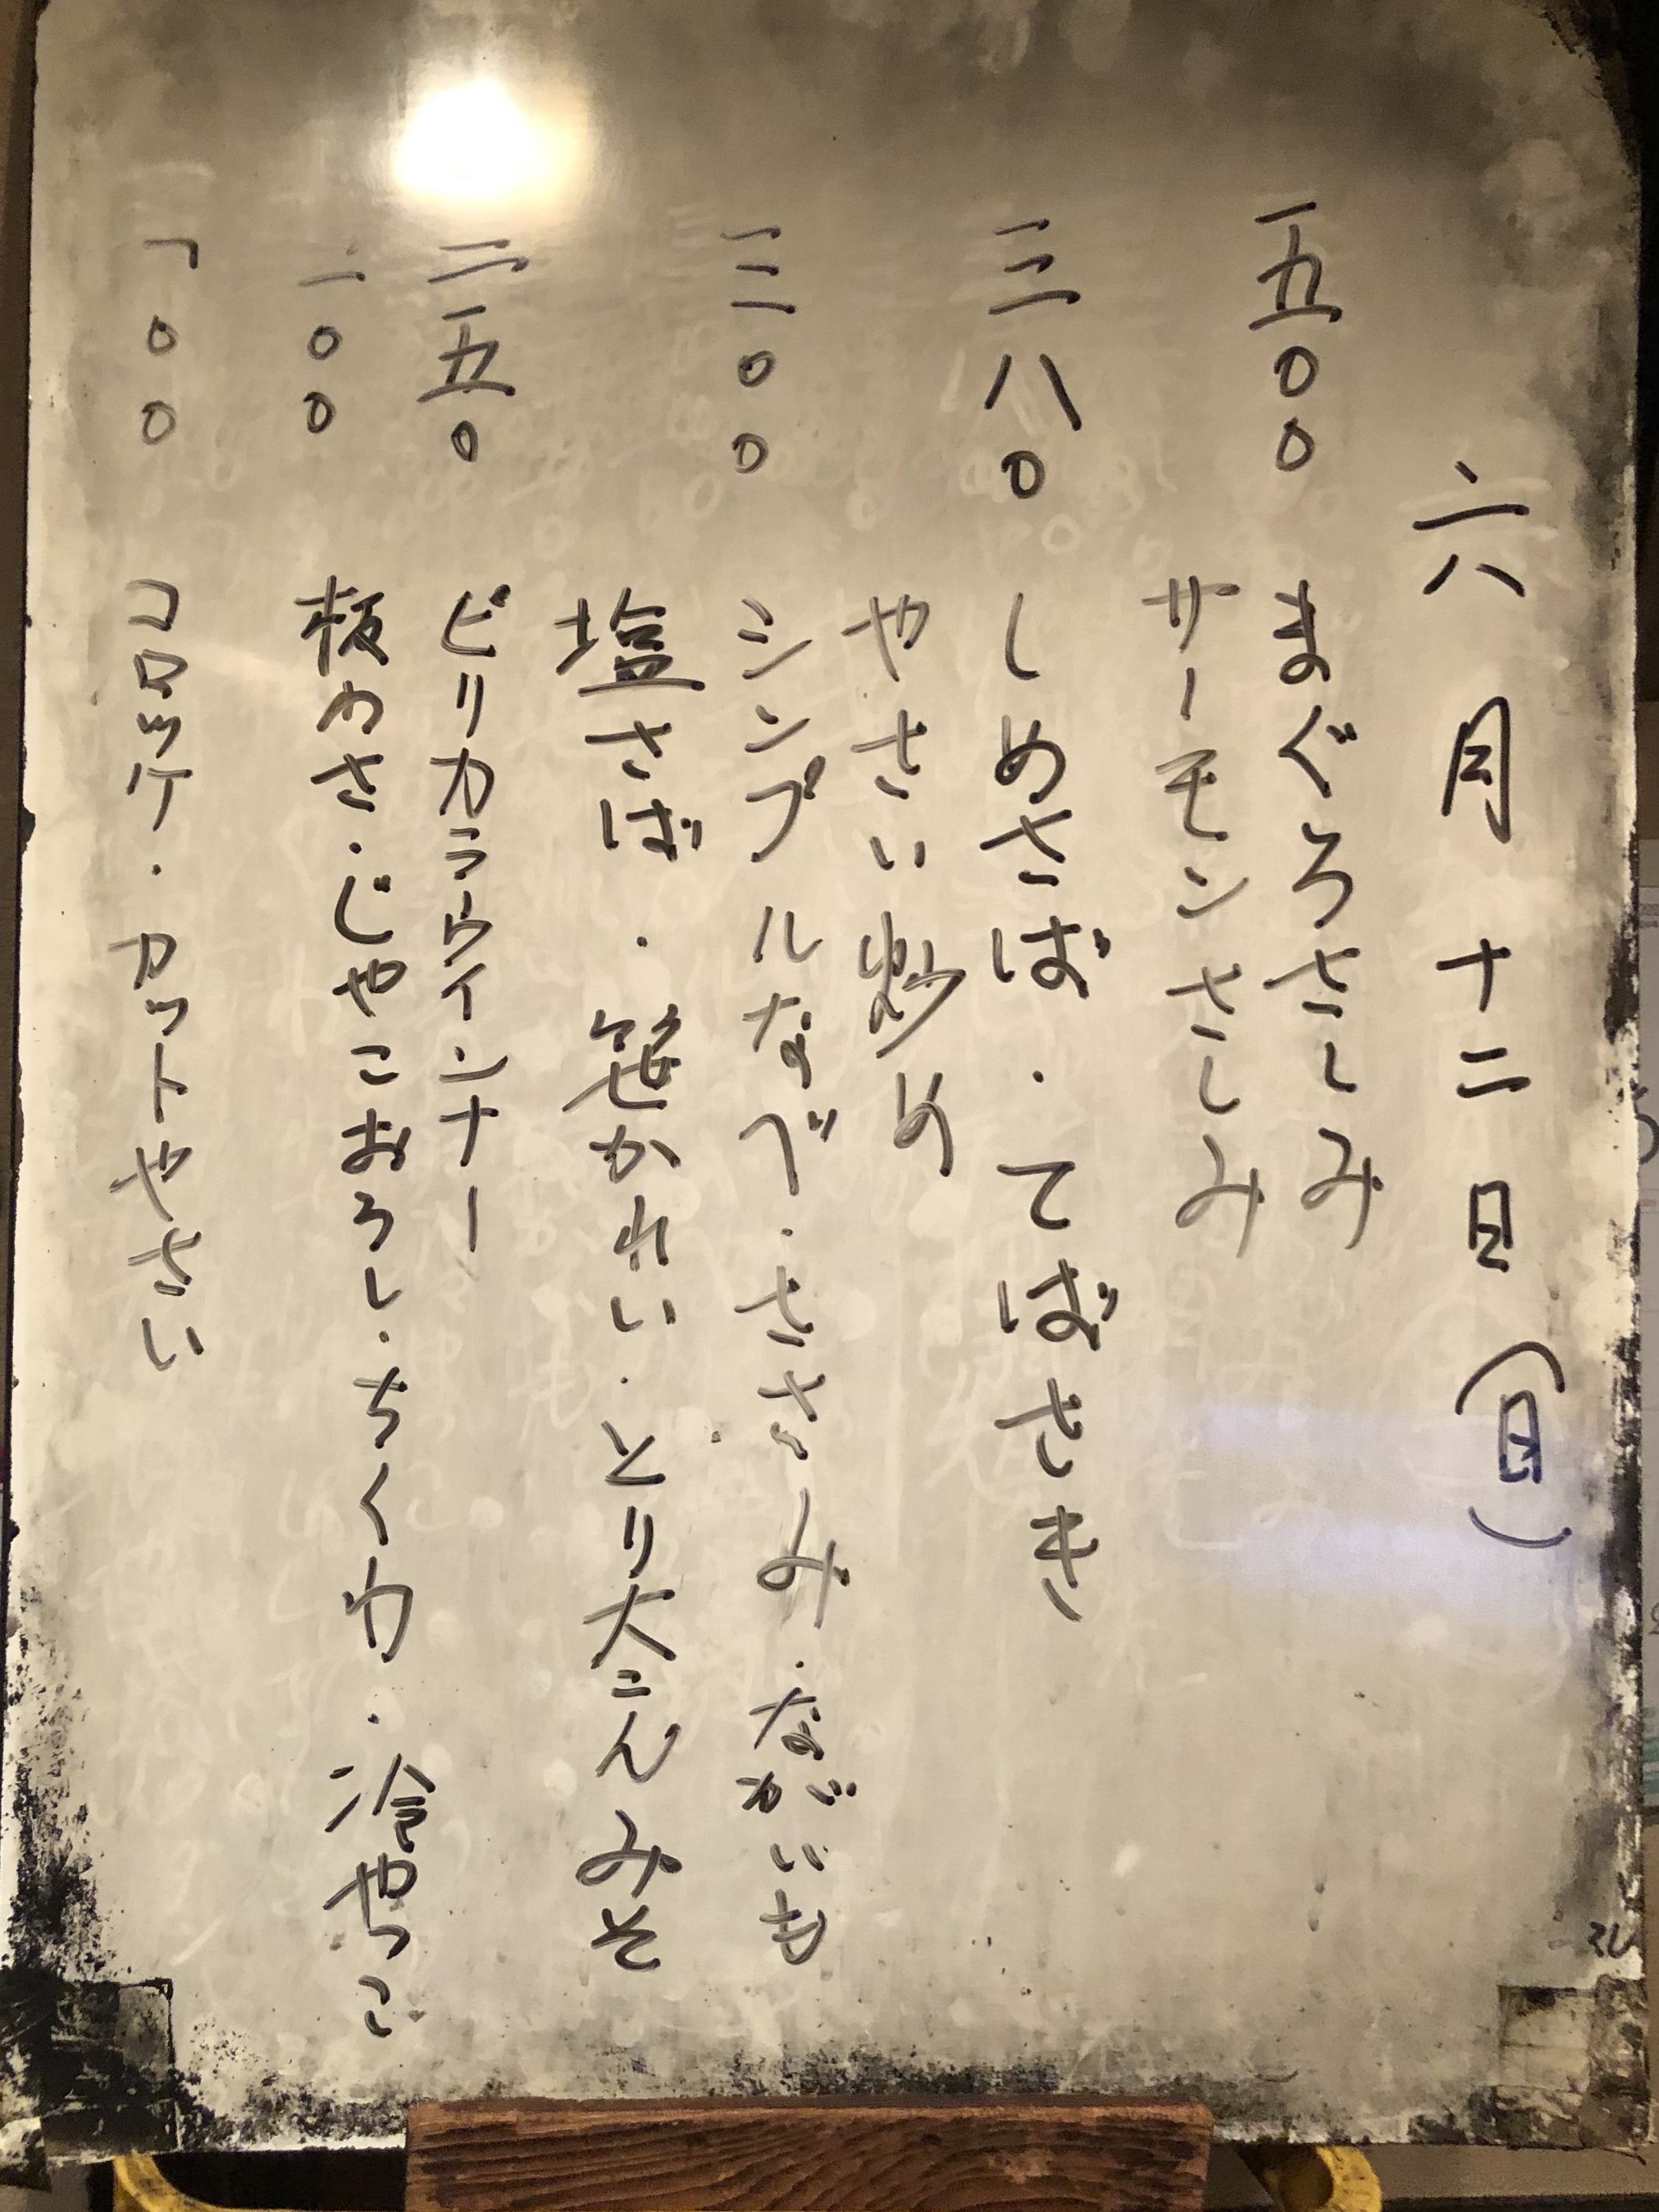 六月十二日(日)
五〇〇 まぐろさしみ
サーモンさしみ
三八〇 しめさば・てばさき
やさい炒め
三〇〇 シンプルなべ・ささみ・ながいも
塩さば・笹かれい・とり大こんみそ
二五〇 ピリカラウインナー
一〇〇 板わさ・じゃこおろし・ちくわ・冷やっこ
一〇〇 コロッケ・カットやさい